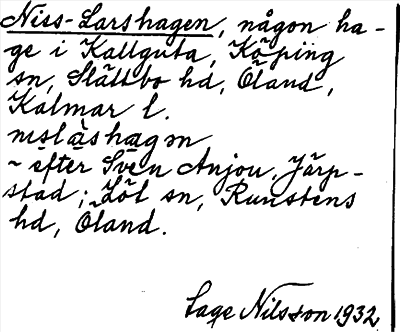 Niss-Larshagen, någon ha-
ge i Kallguta, Köping
sn, Slättbo hd, Öland,
Kalmar l.
nislàshagon
~ efter Sven Anjou, Järp-
stad; Löt sn, Runstens
hd, Öland.
Lage Nilsson 1932